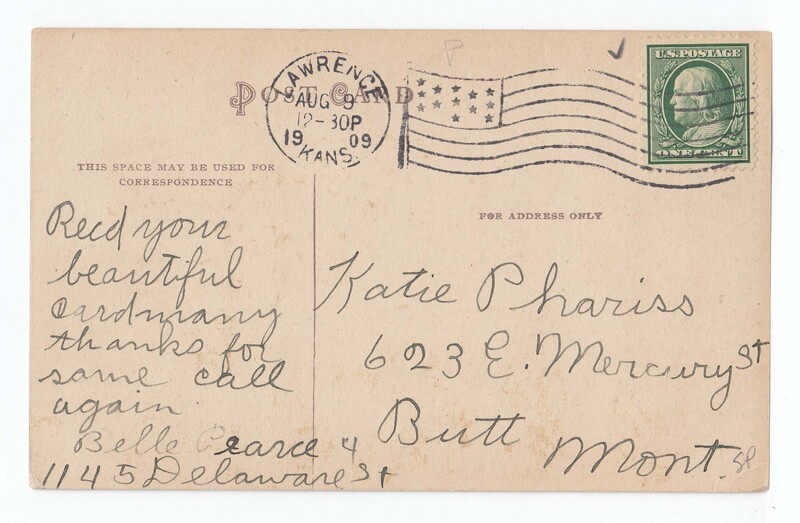 P
POST CARD
LAWRENCE
AUG 9
12-30P
19 09
KANS.
U.S. POSTAGE
ONE CENT
THIS SPACE MAY BE USED FOR
CORRESPONDENCE
FOR ADDRESS ONLY
Recd your
beautiful
card many
thanks for
same call
again
Belle Pearce
1145 Delaware St
Katie Phariss
623 E. Mercury St
Butt
Mont.